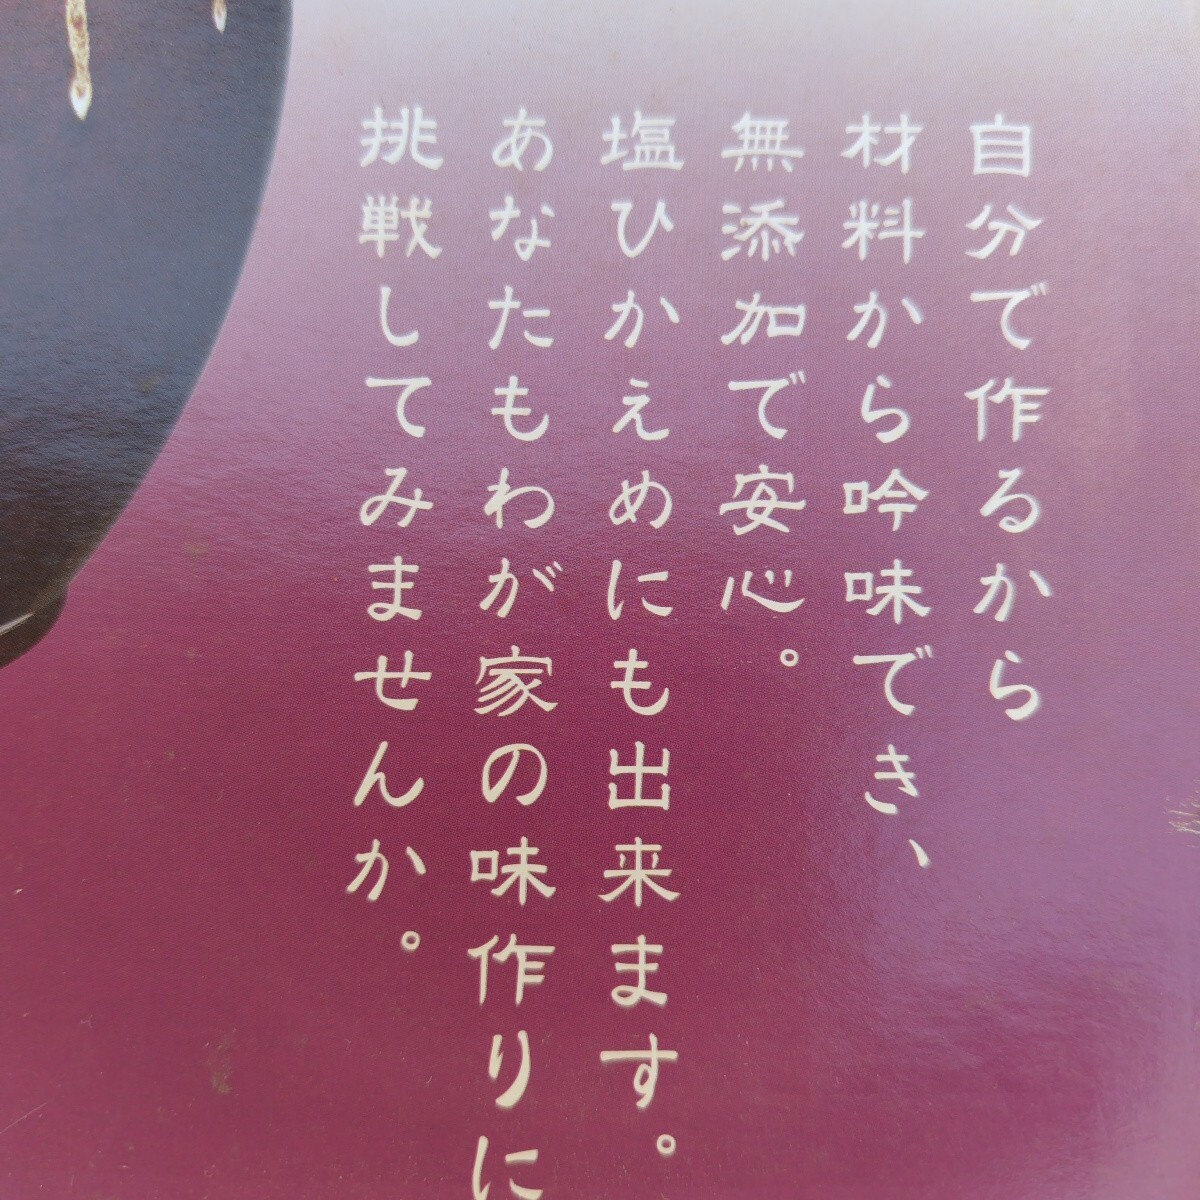 自分で作るから
材料から吟味でき、
無添加で安心。
塩ひかえめにも出来ます。
あなたもわが家の味作りに
挑戦してみませんか。